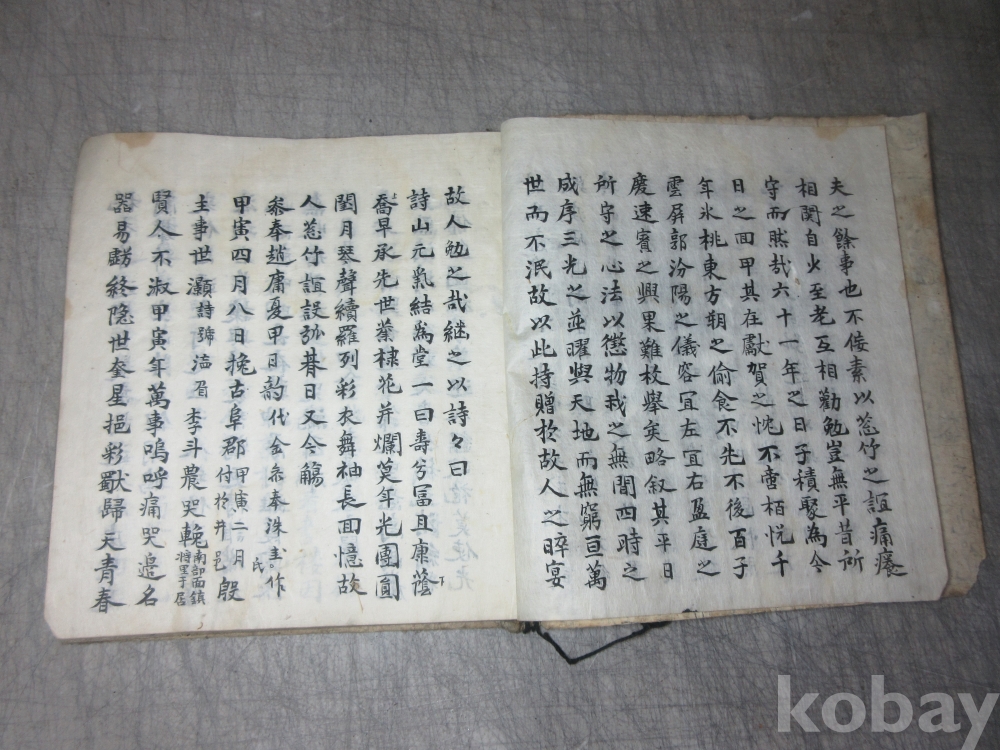 夫之餘事也不佞素以葱竹之誼痛癢
相関自火至老互相勸勉豈無平昔所
守而然哉六十一年之日子積聚為今
日之回甲其在獻賀之忱不啻栢悅千
年氷桃東方朔之偷食不先不後百子
雲屏郭汾陽之儀容冝左冝右盈庭之
慶速賓之興果難枚舉矣略叙其平日
所守之心法以懲物我之無間四時之
成序三光之並曜與天地而無窮亘萬
世而不泯故以此持贈於故人之晬宴
故人勉之哉継之以詩々曰
詩山元氣結爲堂一曰壽兮冨且康蔭下
喬早承先世業棣花并爛莫年光團圓
閏月琴聲續羅列彩衣舞袖長回憶故
人葱竹誼設弧暮日又今觴
叅奉趙庸夏甲日韵代金叅奉洙 氏作
甲寅四月八日挽古阜郡甲寅二月付於井邑殷
主事世灝詩號 眉李斗農哭輓南部面鎮將里于居
賢人不淑甲寅年萬事嗚呼痛哭邉名
器易 終隐世奎星挹彩獸歸天青春
kobay